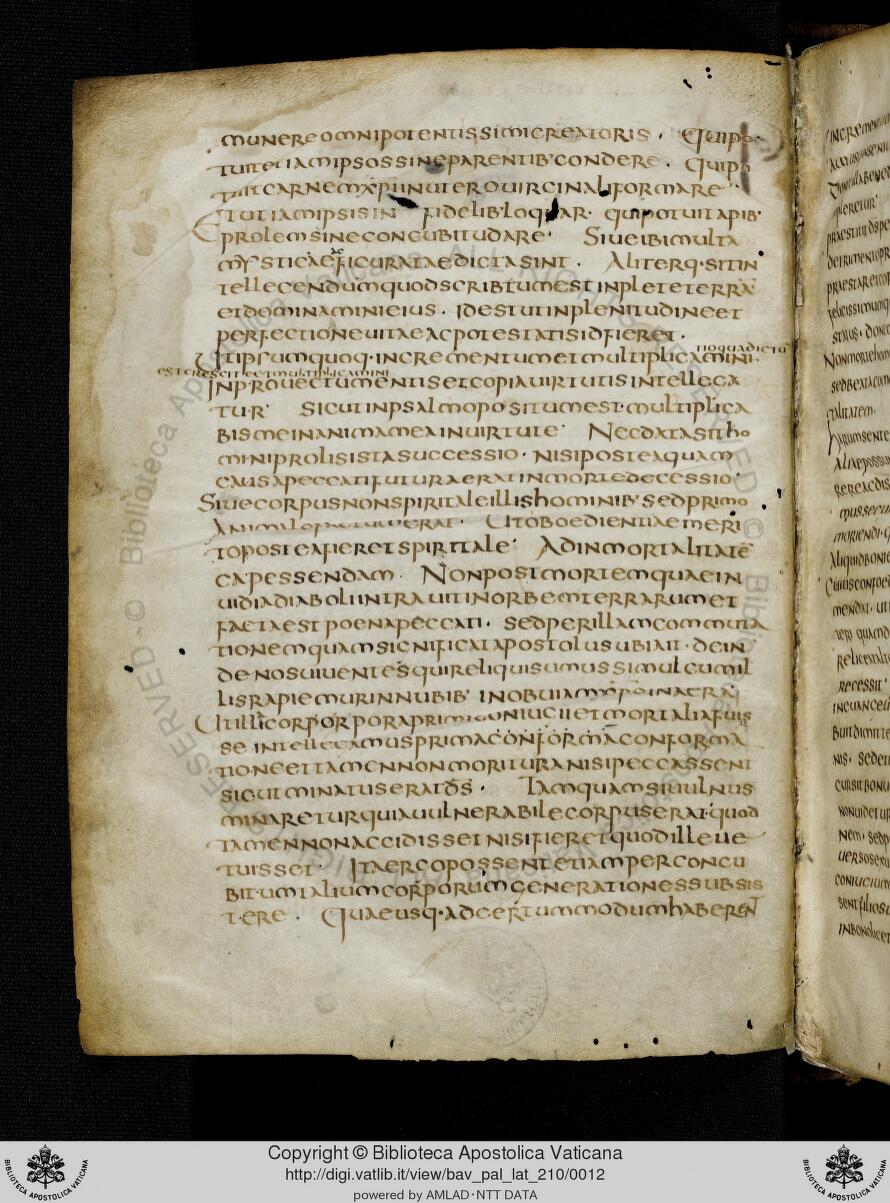 munereomnipotentissimicreatoris · Quipo
tuitetiamipsossineparentib·condere · Quipo
tuitcarnemxpiinuterouirginaliformare ·
Etutiamipsisin fidelib·loquar · quipotuitapib·
prolemsineconcubitudare · Siueibimulta
mysticaefiguratae dictasint · Aliterq·sitin
tellegendumquodscribtumestinpleteterrā
etdominamínieius · idestutinplenitudineet
perfectioneuitaeacpotestatisidfieret ·
Utipsumquoq·incrementumetmultiplicamini tioquadictū
estcresciteetmultiplicamini
Inprouectumentisetcopiauirtutisintellega
tur · Sicutinpsalmopositumest·multiplica
bismeinanimameainuirtute · Necdatasitho
miniprolisistasuccessio · nisiposteaquam
causapeccatifuturaeratinmortedecessio ·
Siuecorpusnonspiritaleillishominib·sedprimo
animale Utoboedientiaemeri
topostea fieretspiritale · Adinmortalitatē
capessendam · Nonpostmortemquaein
uidiadiaboliintrauitinorbemterrarumet
factaestpoenapeccati · sedperillamcommuta
tionemquamsignificatapostolusubiait · dein
denosuiuentesquireliquisumussimulcumil
lisrapiemurinnubib·inobuiam
Utilla
se intellegamusprima conforma
tioneettamennonmorituranisipeccassent
sicutminatuseratds̄ · Tamquamsiuulnus
minareturquiauulnerabilecorpuserat·quod
tamennonaccidissetnisifieretquodilleue
tuisset · Itaergopossentetiamperconcu
bitumtaliumcorporumgenerationessubsis
tere · Quaeusq·adcertummodumhaberent
Copyright © Biblioteca Apostolica Vaticana
http://digi.vatlib.it/view/bav_pal_lat_210/0012
powered by AMLAD·NTT DATA